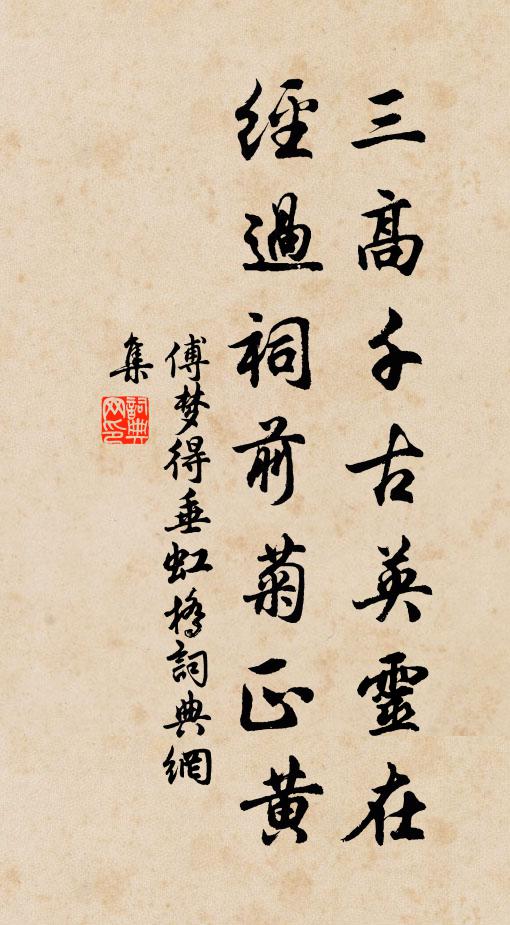 三高千古英靈在
經過祠前菊正黃
傅梦得垂虹橋詞典網
集
詞典网印